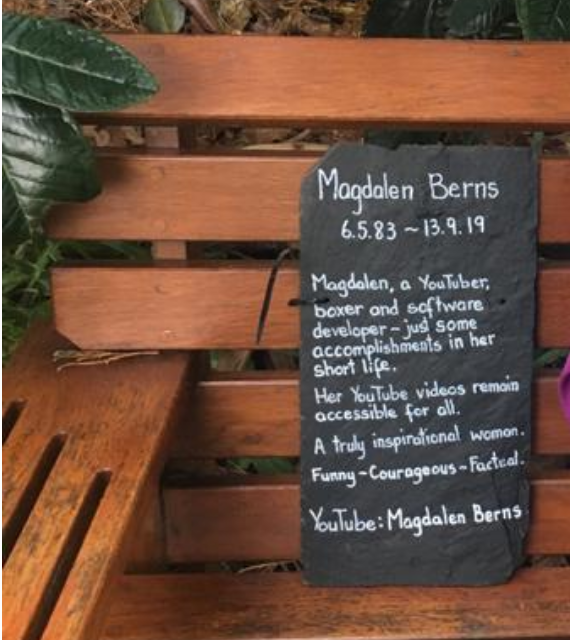 Magdalen Berns
6.5.83 ~ 13.9.19
Magdalen, a YouTuber,
boxer and software
developer - just some
accomplishments in her
short life.
Her YouTube videos remain
accessible for all.
A truly inspirational woman.
Funny ~ Courageous ~ Factual.
YouTube: Magdalen Berns